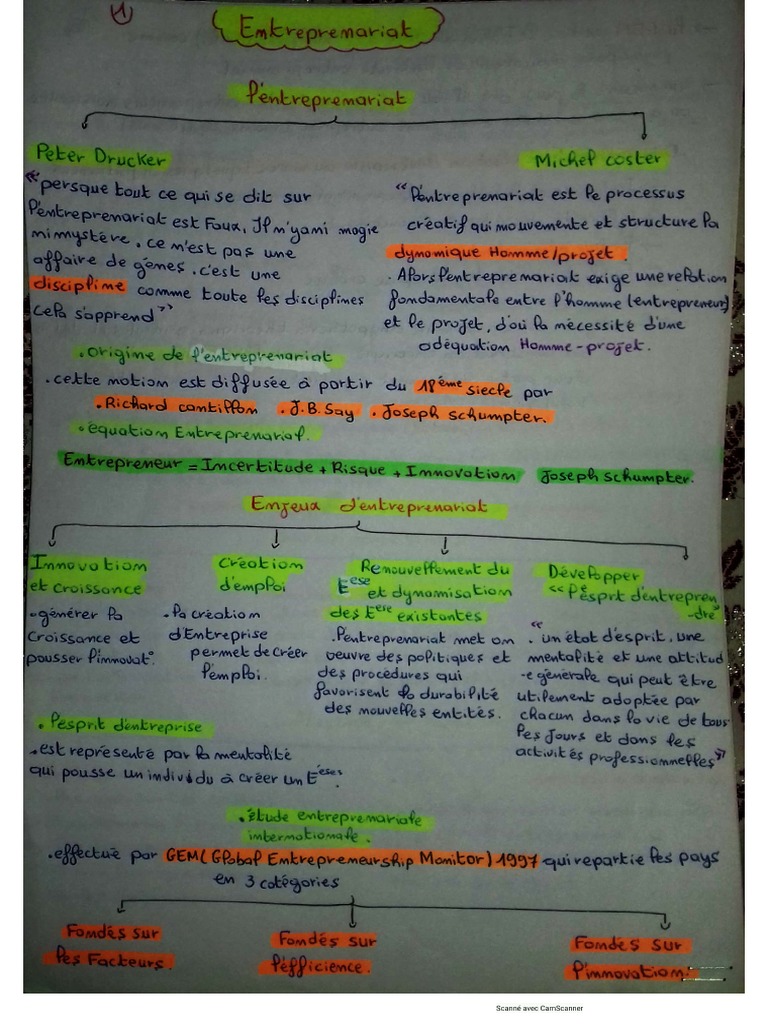 1
Entreprenariat
l'entreprenariat
Peter Drucker
"persque tout ce qui se dit sur
l'entreprenariat est Faux, Il n'y a ni magie
ni mystère. ce n'est pas une
affaire de gènes. c'est une
discipline comme toute les disciplines
cela s'apprend"
Michel coster
"l'entreprenariat est le processus
créatif qui mouvemente et structure la
dynamique Homme/projet.
. Alors l'entreprenariat exige une relation
fondamentale entre l'homme (entrepreneur)
et le projet, d'où la nécessité d'une
adéquation Homme-projet.
. origine de l'entreprenariat
. cette notion est diffusée à partir du 18ème siecle par
. Richard cantillon . J.B. Say . Joseph schumpter.
. équation Entreprenariat.
Entrepreneur = Incertitude + Risque + Innovation Joseph Schumpter.
Enjeux d'entreprenariat
Innovation
et Croissance
. générer la
Croissance et
pousser l'innovat°.
Création
d'emploi
. la création
d'Entreprise
permet de créer
l'emploi.
Renouvellement du
Eese et dynamisation
des Eese existantes
. l'entreprenariat met en
oeuvre des politiques et
des procédures qui
favorisent la durabilité
des nouvelles entités.
Développer
"l'ésprit d'entrepren
-dre"
" . un état d'esprit, une
mentalité et une attitud
-e générale qui peut être
utilement adoptée par
chacun dans la vie de tous
les jours et dans les
activités professionnelles"
. l'esprit d'entreprise
. est représenté par la mentalité
qui pousse un individu à créer un Eese.
. étude entreprenariale
internationale.
. effectué par GEM (Global Entrepreneurship Monitor) 1997 qui repartie les pays
en 3 catégories
Fondés sur
les Facteurs.
Fondés sur
l'éfficience.
Fondés sur
l'innovation.
Scanné avec CamScanner